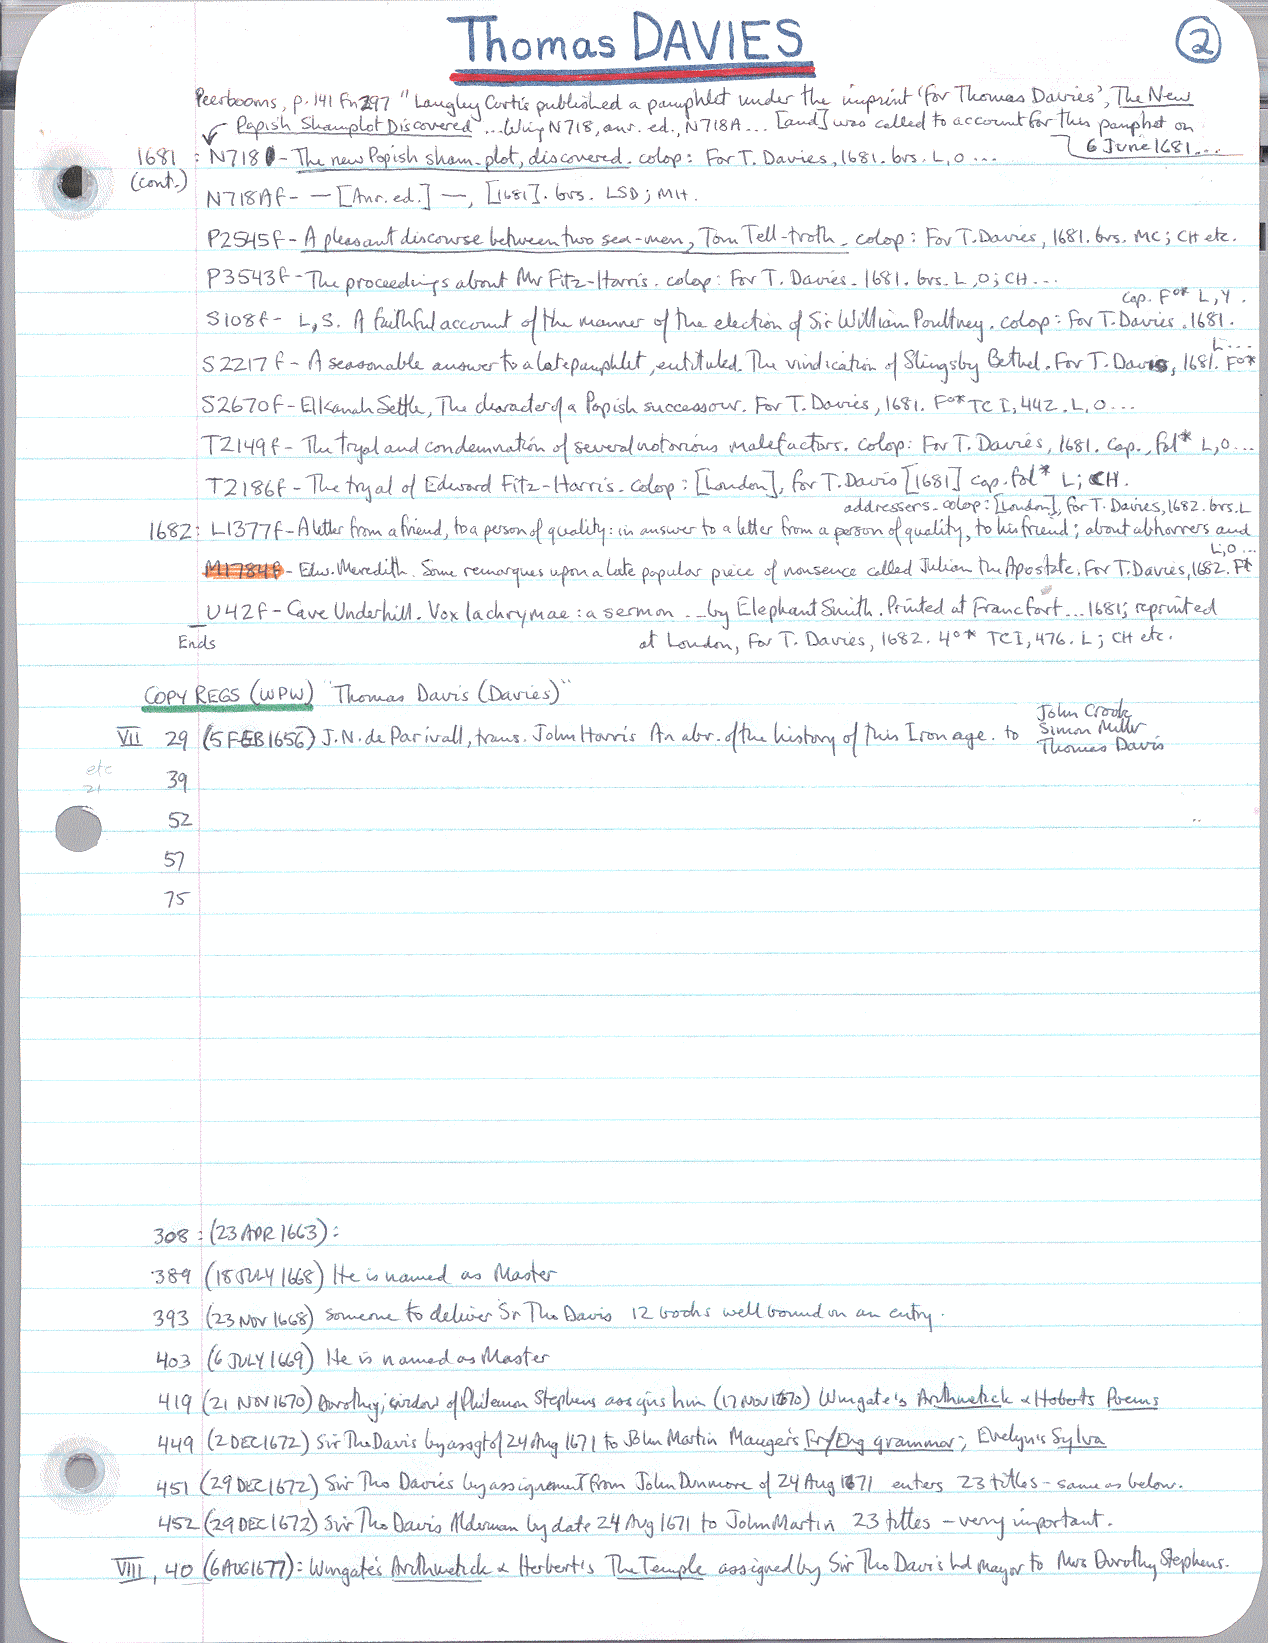 Thomas DAVIES
2
Peerbooms, p. 141 Fn 297 "Langley Curtis published a pamphlet under the imprint 'for Thomas Davies', The New
Popish Shamplot Discovered ... Wing N718, anr. ed., N718A ... [and] was called to account for this pamphlet on
6 June 1681...
1681 : N718 - The new Popish sham-plot, discovered. colop: For T. Davies, 1681. brs. L, O ...
(cont.)
N718Af - — [Anr. ed.] —, [1681]. brs. LSD; MH.
P2545f - A pleasant discourse between two sea-men, Tom Tell-troth. colop: For T. Davies, 1681. brs. MC; CH etc.
P3543f - The proceedings about Mr Fitz-Harris. colop: For T. Davies. 1681. brs. L, O; CH ...
cap. Fo* L, Y.
S108f - L, S. A faithful account of the manner of the election of Sir William Poultney. colop: For T. Davies. 1681.
L....
S2217f - A seasonable answer to a late pamphlet, entituled. The vindication of Slingsby Bethel. For T. Davis, 1681. Fo*
S2670f - Elkanah Settle, The character of a Popish successour. For T. Davies, 1681. Fo* TC I, 442. L, O ...
T2149f - The tryal and condemnation of several notorious malefactors. colop: For T. Davies, 1681. cap., fol* L, O ...
T2186f - The tryal of Edward Fitz-Harris. colop: [London], for T. Davis [1681] cap. fol* L; CH.
addressers. colop: [London], for T. Davies, 1682. brs. L
1682: L1377f - A letter from a friend, to a person of quality: in answer to a letter from a person of quality, to his friend; about abhorrers and
L, O ...
M1784f - Edw. Meredith. Some remarques upon a late popular piece of nonsence called Julian the Apostate. For T. Davies, 1682. Ft
U42f - Cave Underhill. Vox lachrymae: a sermon ... by Elephant Smith. Printed at Francfort ... 1681; reprinted
Ends at London, for T. Davies, 1682. 4o* TC I, 476. L; CH etc.
COPY REGS (WPW) "Thomas Davis (Davies)"
John Crook
VII 29 (5 FEB 1656) J. N. de Parivall, trans. John Harris An abr. of the history of this Iron age. to Simon Miller
Thomas Davis
etc
21
39
52
57
75
308 : (23 APR 1663):
389 (18 JULY 1668) He is named as Master
393 (23 NOV 1668) someone to deliver Sr Tho Davis 12 books well bound on an entry.
403 (6 JULY 1669) He is named as Master
419 (21 NOV 1670) Dorothy, widow of Philemon Stephens assigns him (17 NOV 1670) Wingate's Arithmetick & Hoberts Poems
449 (2 DEC 1672) Sir Tho Davis by assgt of 24 Aug 1671 to John Martin Mauger's Fr/Eng grammar; Evelyn's Sylva
451 (29 DEC 1672) Sir Tho Davies by assignement from John Dunmore of 24 Aug 1671 enters 23 titles - same as below.
452 (29 DEC 1672) Sir Tho Davis Alderman by date 24 Aug 1671 to John Martin 23 titles - very important.
VIII, 40 (6 AUG 1677): Wingate's Arithmetick & Herbert's The Temple assigned by Sir Tho Davis Ld mayor to Mrs Dorothy Stephens.